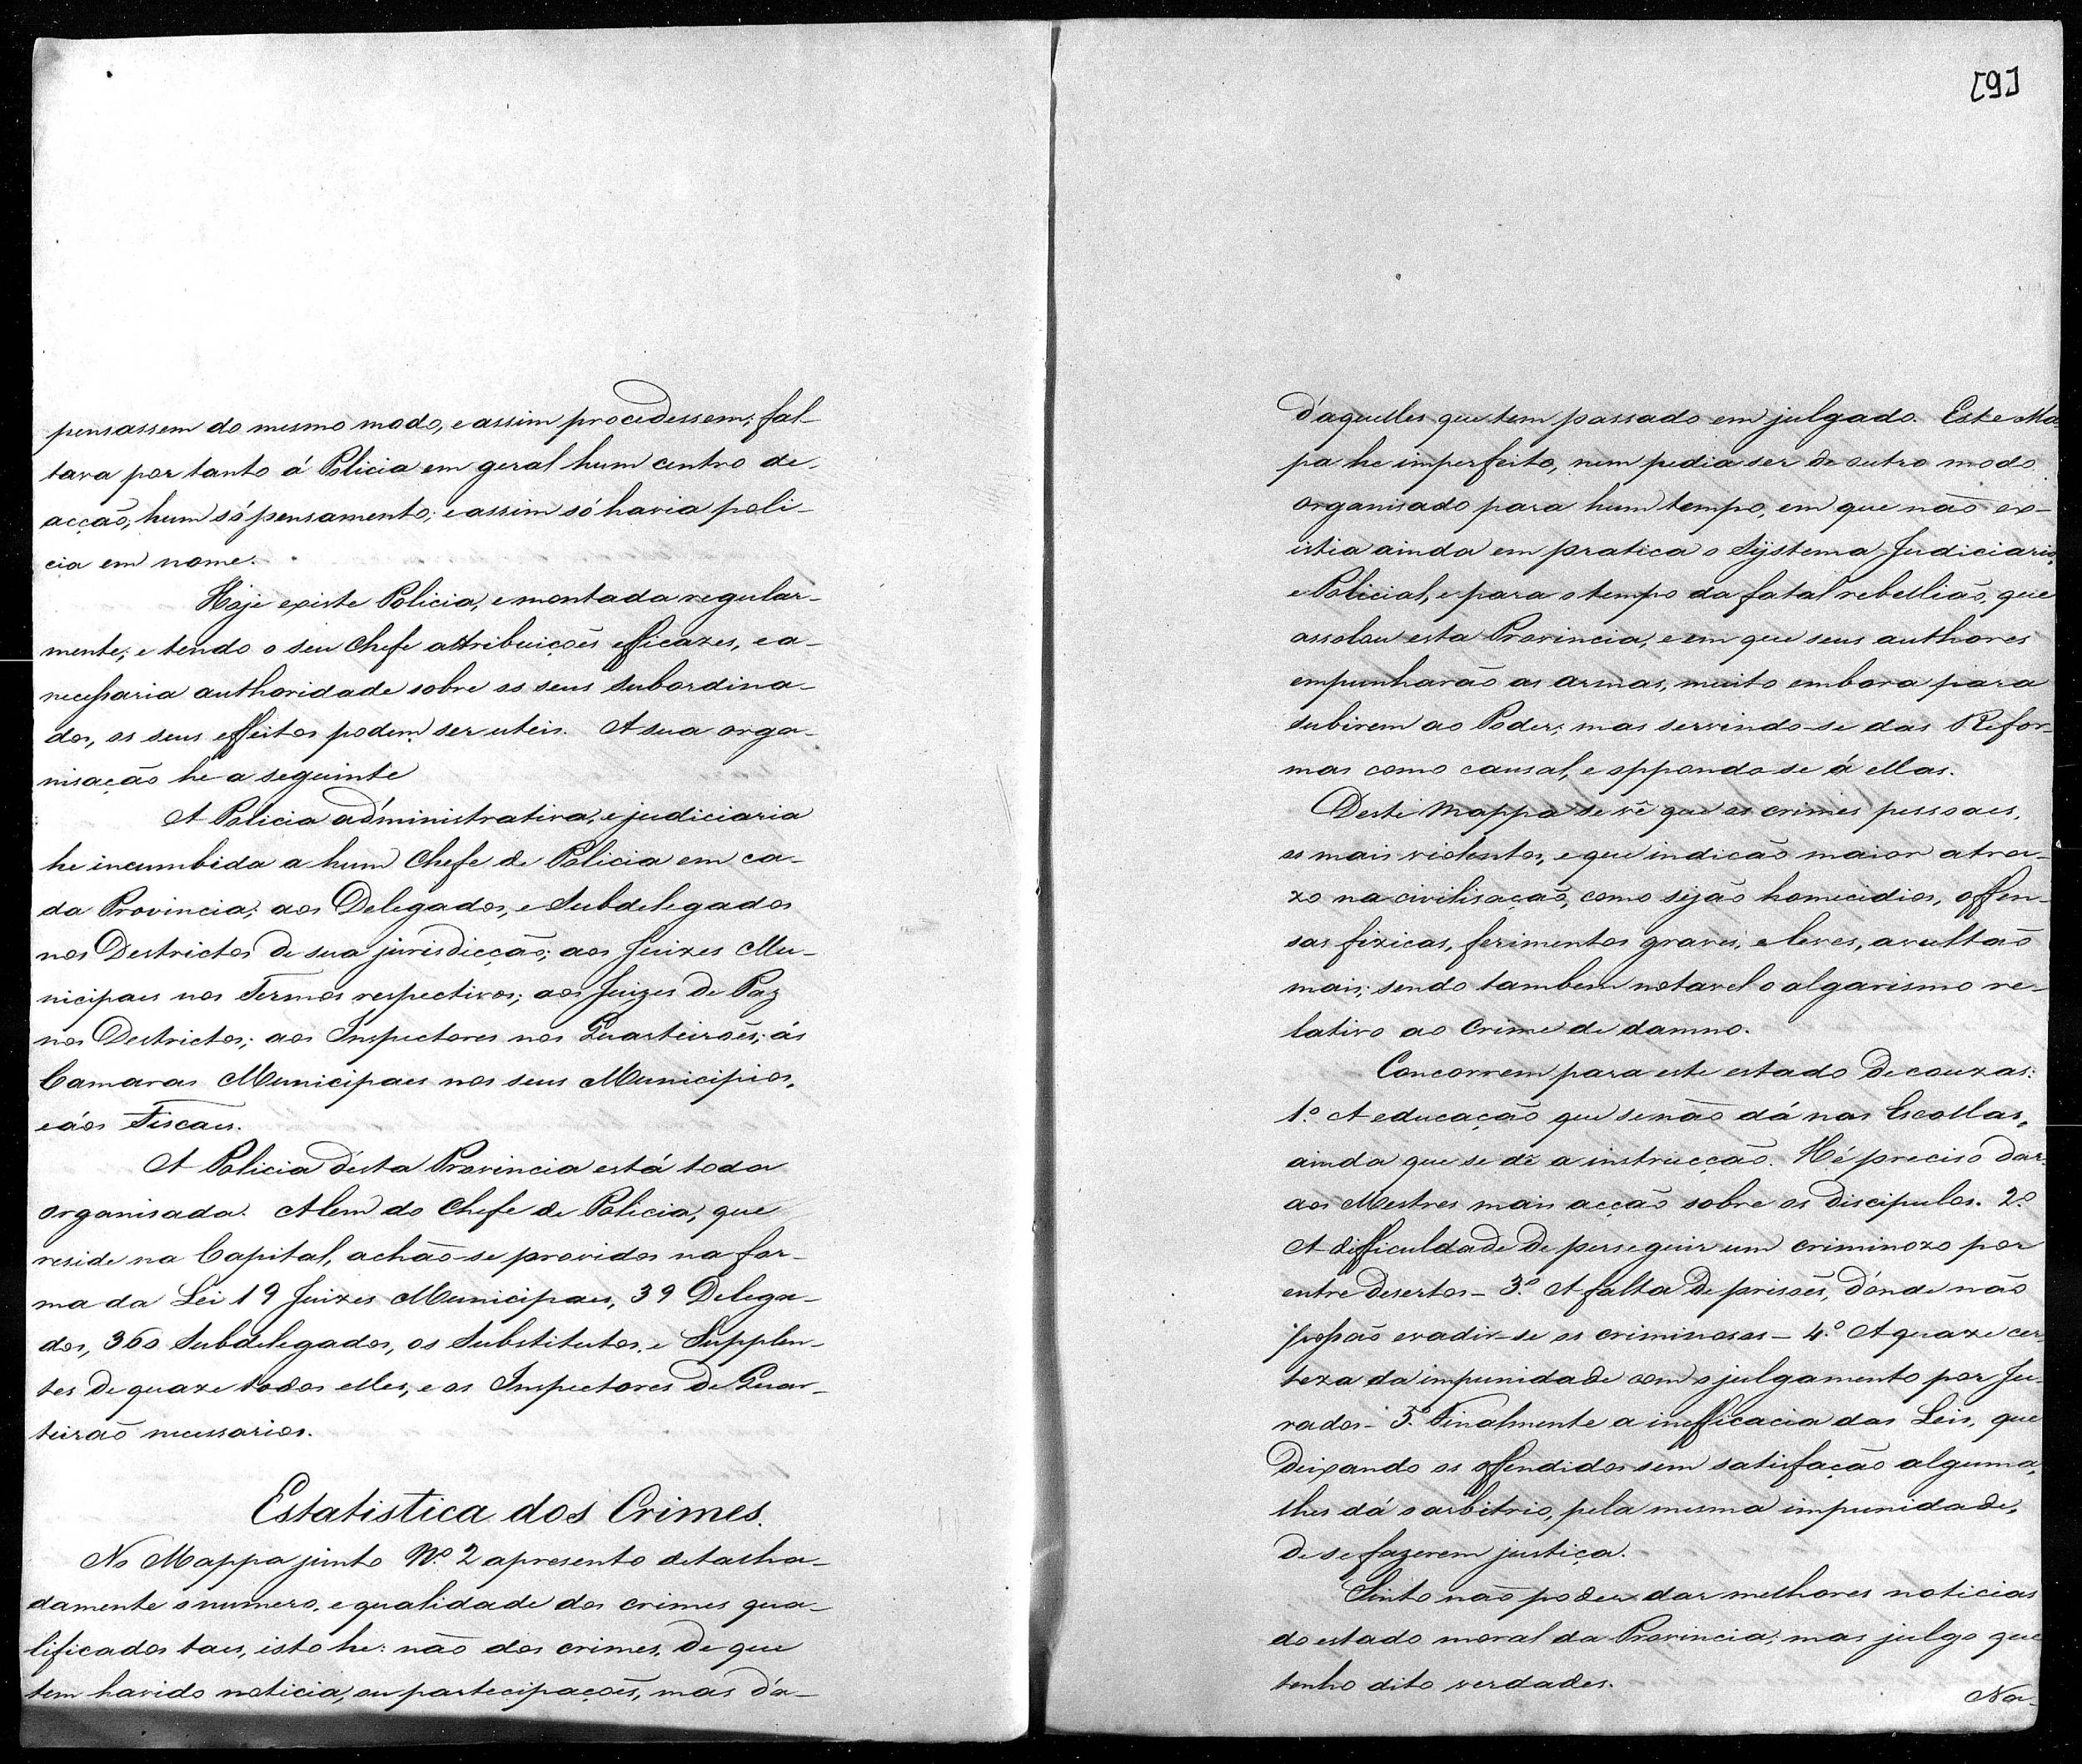 pensassem do mesmo modo, e assim procedessem; fal-
tava por tanto á Policia em geral hum centro de
acção, hum só pensamento; e assim só havia poli-
cia em nome.
Hoje existe Policia, e montada regular-
mente; e tendo o seu Chefe attribuições efficazes, e a
necessaria authoridade sobre os seus Subordina-
dos, os seus effeitos podem ser uteis. A sua orga-
nisação he a seguinte
A Policia administrativa, e judiciaria
he incumbida a hum Chefe de Policia em ca-
da Provincia; aos Delegados, e Subdelegados
nos Destrictos de sua jurisdicção; aos Juizes Mu-
nicipaes nos Termos respectivos; aos Juizes de Paz
nos Destrictos; aos Inspectores nos Quarteirões; ás
Camaras Municipaes nos seus Municipios,
e áos Fiscaes.
A Policia d'esta Provincia está toda
organisada. Alem do Chefe de Policia, que
reside na Capital, achão-se providos na for-
ma da Lei 19 Juizes Municipaes, 39 Delega-
dos, 360 Subdelegados, os Substitutos, e Supplen-
tes de quaze todos elles, e os Inspectores de Quar-
teirão necessarios.
Estatistica dos Crimes.
No Mappa junto Nº 2 apresento detalha-
damente o numero, e qualidade dos crimes qua-
lificados taes, isto he: não dos crimes, de que
tem havido noticia, ou partecipações, mas d'a-
[9]
d'aquelles que tem passado em julgado. Este Ma
pa he imperfeito, nem podia ser de outro modo
organisado para hum tempo, em que não ex-
istia ainda em pratica o Systema Judiciario,
e Policial, e para o tempo da fatal rebellião, que
assolou esta Provincia, e em que seus authores
empunharão as armas, muito embora para
subirem ao Poder; mas servindo-se das Refor-
mas como causal, e oppondo se á ellas.
Deste Mappa se vê que os crimes pessoaes,
os mais violentos, e que indicão maior atra-
zo na civilisação, como sejão homecidios, offen-
sas fizicas, ferimentos graves, e leves, avultão
mais; sendo tambem notavel o algarismo re-
lativo ao Crime de damno.
Concorrem para este estado de couzas:
1.º A educação que se não dá nas Escollas,
ainda que se dê a instrucção. Hé preciso dar
aos Mestres mais acção sobre os Discipulos. 2.º
A difficuldade de perseguir um criminozo por
entre desertos - 3.º A falta de prisões, d'onde não
possão evadir-se os criminosos - 4.º A quaze cer
teza da impunidade com o julgamento por Ju-
rados - 5.º Finalmente a inefficacia das Leis, que
deixando os offendidos sem satisfação alguma,
lhes dá o arbitrio, pela mesma impunidade,
de se fazerem justiça.
Sinto não poder dar melhores noticias
do estado moral da Provincia; mas julgo que
tenho dito verdades.
Na-